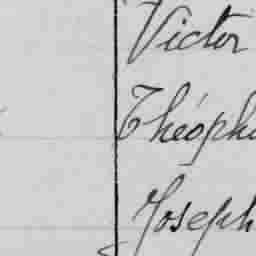 Victor
Théoph
Joseph